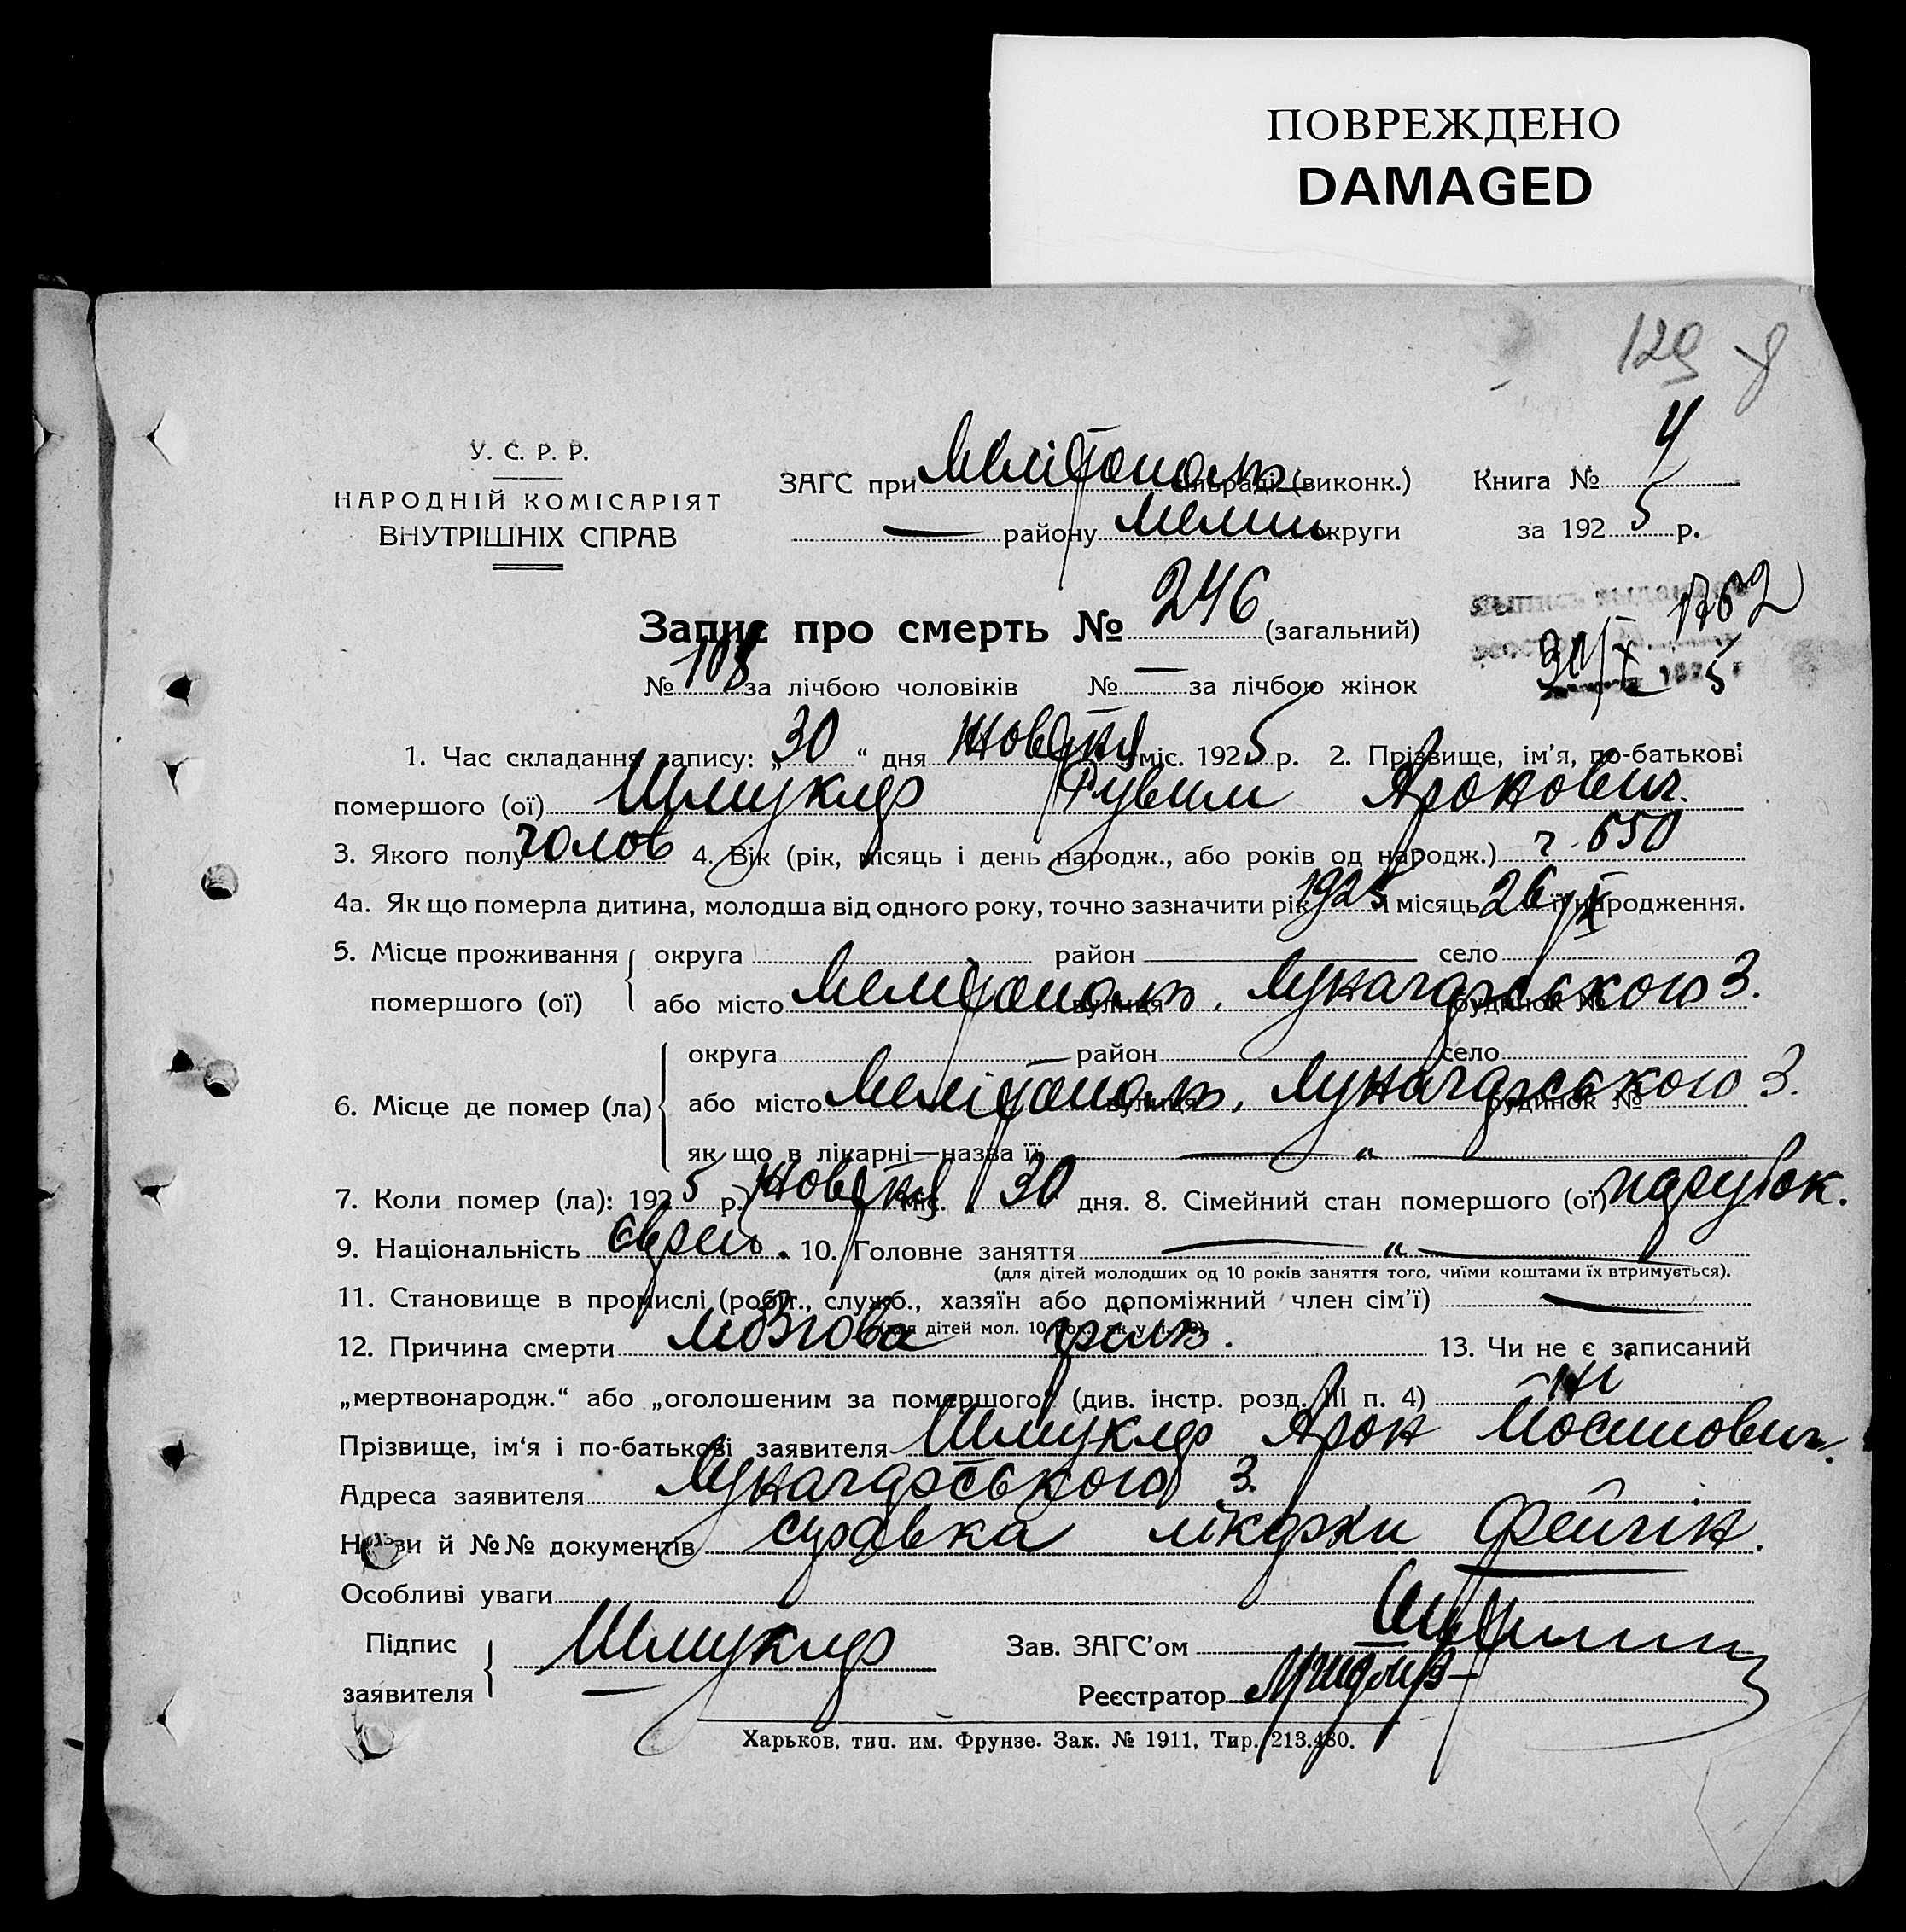 ПОВРЕЖДЕНО
DAMAGED
129
У. С. Р. Р.
НАРОДНІЙ КОМІСАРІЯТ
ВНУТРІШНІХ СПРАВ
ЗАГС при Мелітополь сільраді (виконк.)
— району Мелит округи
Книга № 4
за 1925 р.
Запис про смерть № 246 (загальний)
№ 108 за лічбою чоловіків № — за лічбою жінок
1762
30/X 5
1. Час складання запису: „30“ дня Жовтня міс. 1925 р. 2. Прізвище, ім’я, по-батькові
помершого (ої) Шмукляр Рувим Аронович.
3. Якого полу чолов 4. Вік (рік, місяць і день народж., або років од народж.)
4а. Як що померла дитина, молодша від одного року, точно зазначити рік 1925 і місяць 26/IX її народження.
5. Місце проживання помершого (ої) округа район село
або місто Мелітополь, вулиця Луначарського будинок № 3.
6. Місце де помер (ла) округа район село
або місто Мелітополь, вулиця Луначарського будинок № 3.
як що в лікарні—назва її — „ —
7. Коли помер (ла): 1925 р. Жовтня міс. 30 дня. 8. Сімейний стан помершого (ої) парубок.
9. Національність Єврей. 10. Головне заняття — „ —
(для дітей молодших од 10 років заняття того, чиїми коштами їх втримується).
11. Становище в промислі (робіт., служб., хазяїн або допоміжний член сім’ї) —
(для дітей мол. 10 рок. як у п. 10)
12. Причина смерти мозгова 13. Чи не є записаний
„мертвонародж.“ або „оголошеним за помершого“ (див. інстр. розд. III п. 4) ні
Прізвище, ім‘я і по-батькові заявителя Шмукляр Арон Йосипович.
Адреса заявителя Луначарського 3.
Назви й №№ документів справка лікарки Фейгін.
Особливі уваги
Підпис заявителя Шмукляр
Зав. ЗАГС’ом
Реєстратор
Харьков, тип. им. Фрунзе. Зак. № 1911, Тир. 213.480.